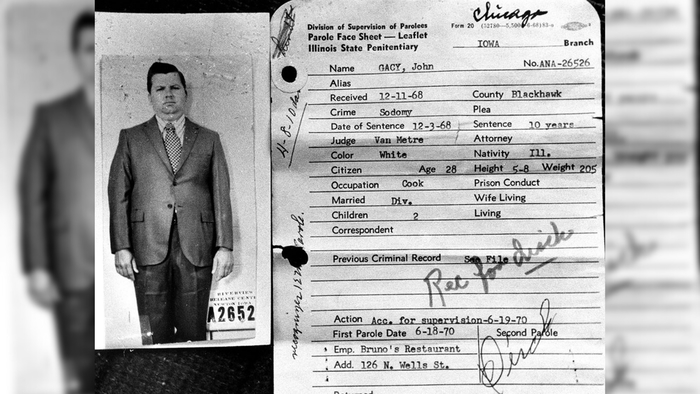 Chicago
Division of Supervision of Parolees
Parole Face Sheet — Leaflet
Illinois State Penitentiary
Form 20
IOWA Branch
Name GACY, John No. ANA-26526
Alias
Received 12-11-68 County Blackhawk
Crime Sodomy Plea
Date of Sentence 12-3-68 Sentence 10 years
Judge Van Metre Attorney
Color White Nativity Ill.
Citizen Age 28 Height 5-8 Weight 205
Occupation Cook Prison Conduct
Married Div. Wife Living
Children 2 Living
Correspondent
Previous Criminal Record See File
Rec from
Action Acc. for supervision-6-19-70
First Parole Date 6-18-70 Second Parole
Emp. Bruno's Restaurant
Add. 126 N. Wells St.
Returned
RIVERVIEW
RELEASE CENTER
NEWTON IOWA
A2652